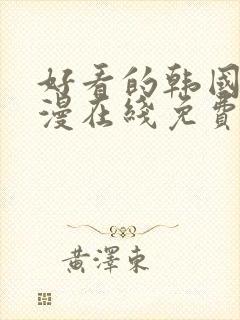 好看的韩国
漫在线免费
黄泽东